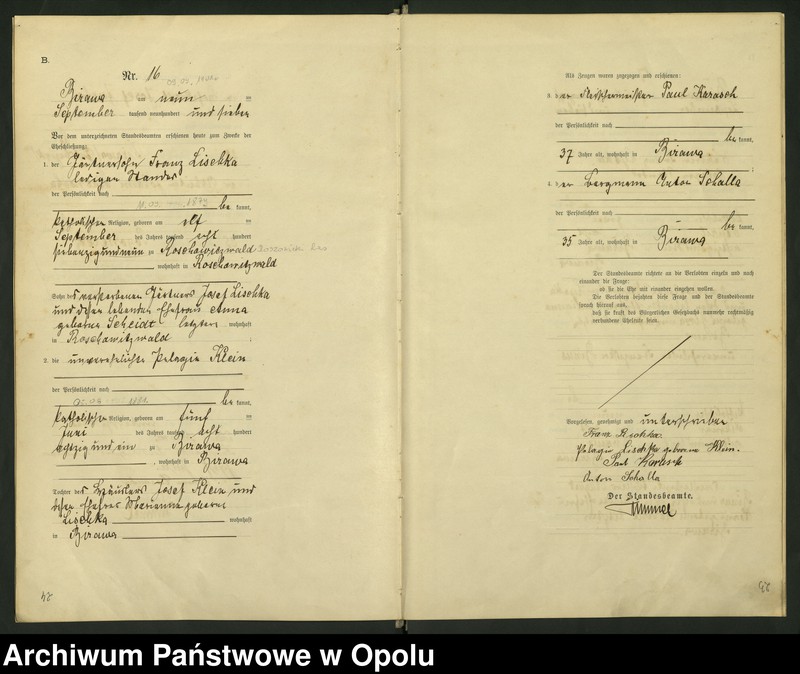 B.
Nr. 16
Birawa am neun ten
September tausend neunhundert und sieben
Vor dem unterzeichneten Standesbeamten erschienen heute zum Zwecke der
Eheschließung:
1. der Gärtnersohn Franz Lischka
ledigen Standes
der Persönlichkeit nach
be kannt,
katholischer Religion, geboren am elf ten
September des Jahres tausend acht hundert
siebenzig und neun zu Roschowitzwald
wohnhaft in Roschowitzwald
Sohn des verstorbenen Gärtners Josef Lischka
und dessen lebenden Ehefrau Anna
geborene Scheidt letztere wohnhaft
in Roschowitzwald
2. die unverehelichte Pelagie Klein
der Persönlichkeit nach
be kannt,
katholischer Religion, geboren am fünf ten
Juni des Jahres tausend acht hundert
achtzig und ein zu Birawa
, wohnhaft in Birawa
Tochter des Häuslers Josef Klein und
dessen Ehefrau Marianne geborene
Lischka wohnhaft
in Birawa
24
Als Zeugen waren zugezogen und erschienen:
3. der Fleischermeister Paul Karasch
der Persönlichkeit nach
be kannt,
37 Jahre alt, wohnhaft in Birawa
4. der Bergmann Anton Schalla
der Persönlichkeit nach
be kannt,
35 Jahre alt, wohnhaft in Birawa
Der Standesbeamte richtete an die Verlobten einzeln und nach
einander die Frage:
ob sie die Ehe mit einander eingehen wollen.
Die Verlobten bejahten diese Frage und der Standesbeamte
sprach hierauf aus,
daß sie kraft des Bürgerlichen Gesetzbuchs nunmehr rechtmäßig
verbundene Eheleute seien.
Vorgelesen, genehmigt und unterschrieben
Franz Lischka.
Pelagie Lischka geborene Klein.
Paul Karasch
Anton Schalla
Der Standesbeamte.
Archiwum Państwowe w Opolu